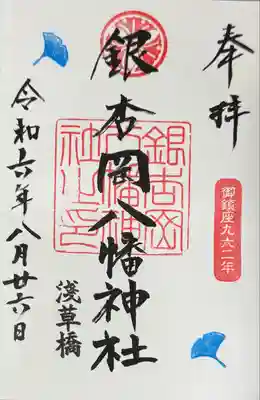 奉拝
御鎮座九六二年
銀杏岡八幡神社
浅草橋
令和六年八月廿六日